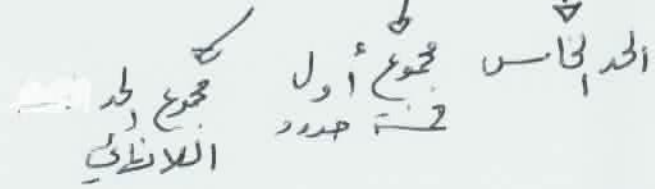 الحد الخامس
مجموع أول
خمسة حدود
مجموع الحد
اللانهائي